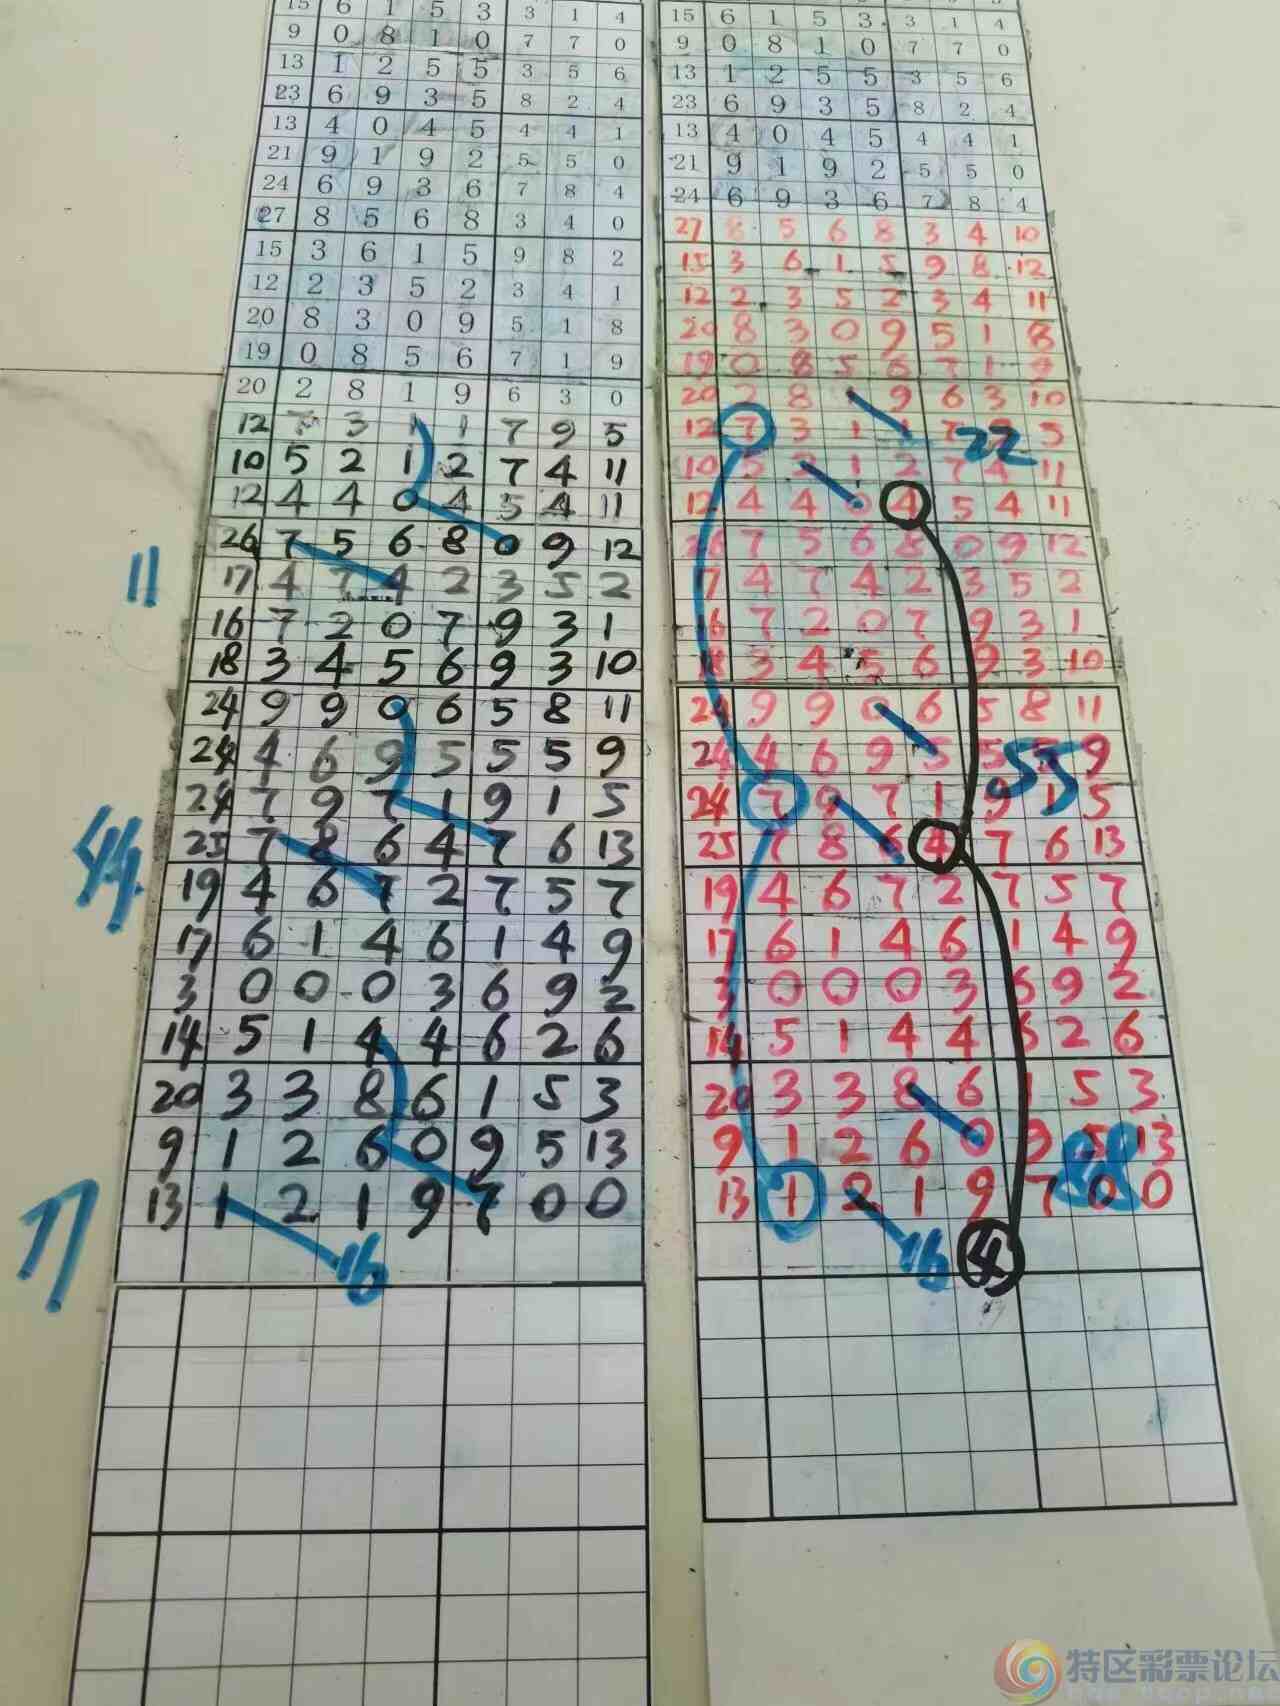 15 6 1 5 3 3 1 4
9 0 8 1 0 7 7 0
13 1 2 5 5 3 5 6
23 6 9 3 5 8 2 4
13 4 0 4 5 4 4 1
21 9 1 9 2 5 5 0
24 6 9 3 6 7 8 4
27 8 5 6 8 3 4 0
15 3 6 1 5 9 8 2
12 2 3 5 2 3 4 1
20 8 3 0 9 5 1 8
19 0 8 5 6 7 1 9
20 2 8 1 9 6 3 0
12 7 3 1 1 7 9 5
10 5 2 1 2 7 4 11
12 4 4 0 4 5 4 11
26 7 5 6 8 0 9 12
11
17 4 7 4 2 3 5 2
16 7 2 0 7 9 3 1
18 3 4 5 6 9 3 10
24 9 9 0 6 5 8 11
24 4 6 9 5 5 5 9
24 7 9 7 1 9 1 5
25 7 8 6 4 7 6 13
44
19 4 6 7 2 7 5 7
17 6 1 4 6 1 4 9
3 0 0 0 3 6 9 2
14 5 1 4 4 6 2 6
20 3 3 8 6 1 5 3
9 1 2 6 0 9 5 13
13 1 2 1 9 7 0 0
77
16
15 6 1 5 3 3 1 4
9 0 8 1 0 7 7 0
13 1 2 5 5 3 5 6
23 6 9 3 5 8 2 4
13 4 0 4 5 4 4 1
21 9 1 9 2 5 5 0
24 6 9 3 6 7 8 4
27 8 5 6 8 3 4 10
15 3 6 1 5 9 8 12
12 2 3 5 2 3 4 11
20 8 3 0 9 5 1 8
19 0 8 5 6 7 1 9
20 2 8 9 6 3 10
12 7 3 1 1 7 22 5
10 5 2 1 2 7 4 11
12 4 4 0 4 5 4 11
26 7 5 6 8 0 9 12
17 4 7 4 2 3 5 2
16 7 2 0 7 9 3 1
18 3 4 5 6 9 3 10
24 9 9 0 6 5 8 11
24 4 6 9 5 5 5 9
55
24 7 9 7 1 9 1 5
25 7 8 6 4 7 6 13
19 4 6 7 2 7 5 7
17 6 1 4 6 1 4 9
3 0 0 0 3 6 9 2
14 5 1 4 4 6 2 6
20 3 3 8 6 1 5 3
9 1 2 6 0 9 5 13
88
13 1 2 1 9 7 0 0
16 4
特区彩票论坛